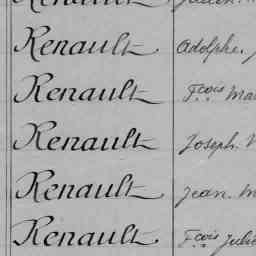 Renault
Renault Adolphe
Renault Fçois Ma
Renault Joseph
Renault Jean M
Renault Fçois Julie